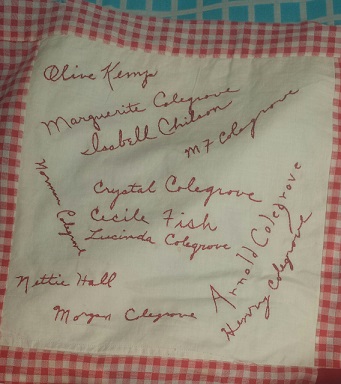 Olive Kemp
Marguerite Colegrove
Isabell Chilson
M F Colegrove
Norman Colegrove
Crystal Colegrove
Cecile Fish
Lucinda Colegrove
Arnold Colegrove
Henry Colegrove
Nettie Hall
Morgan Colegrove